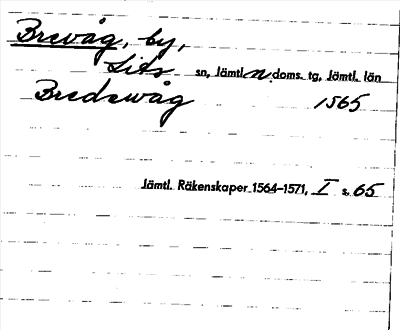 Brevåg, by,
Lits sn, Jämtl. n. doms. tg, Jämtl. län
Bredewåg 1565
Jämtl. Räkenskaper 1564–1571, I s. 65